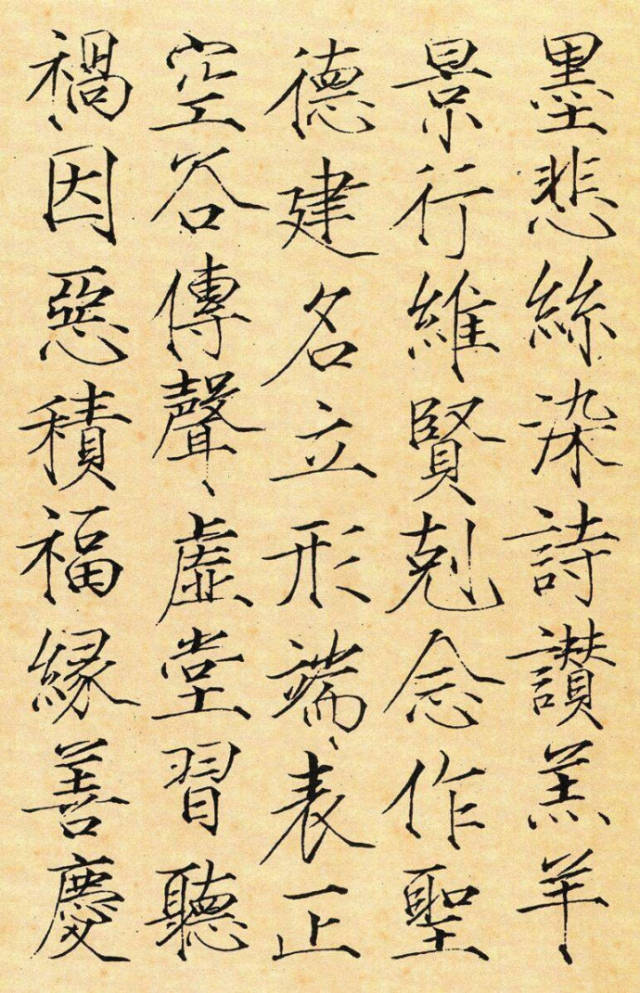 墨悲絲染詩讃羔羊
景行維賢剋念作聖
德建名立形端表正
空谷傳聲虛堂習聽
禍因惡積福緣善慶